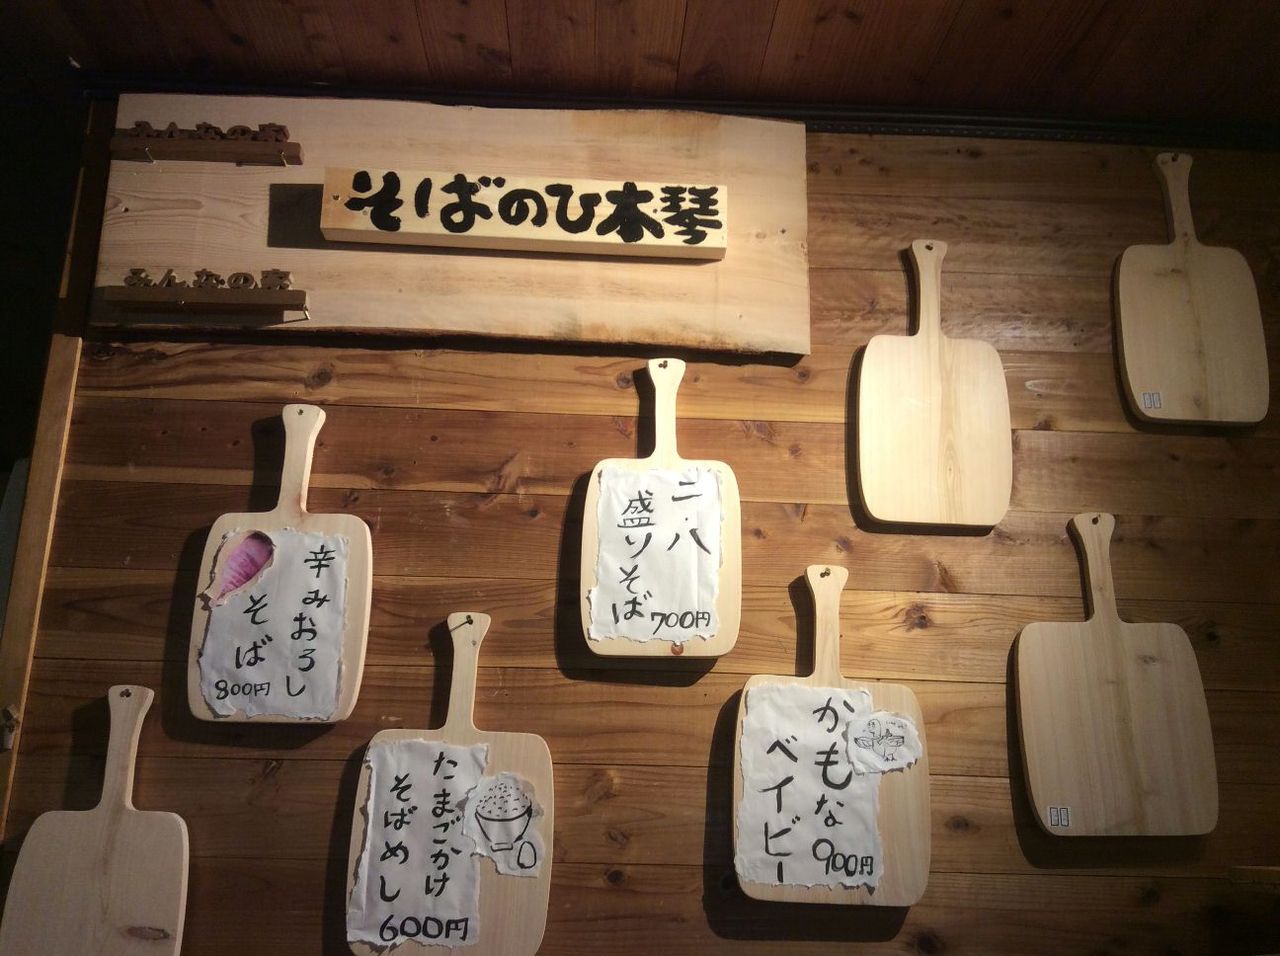 みんなの家
そばのひ本琴
みんなの家
二・八
盛りそば
700円
辛みおろし
そば
800円
かもな
ベイビー
900円
たまごかけ
そばめし
600円